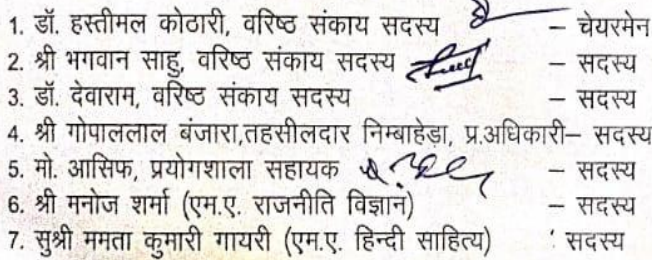 1. डॉ. हस्तीमल कोठारी, वरिष्ठ संकाय सदस्य – चेयरमेन
2. श्री भगवान साहु, वरिष्ठ संकाय सदस्य – सदस्य
3. डॉ. देवाराम, वरिष्ठ संकाय सदस्य – सदस्य
4. श्री गोपाललाल बंजारा,तहसीलदार निम्बाहेडा, प्र.अधिकारी– सदस्य
5. मो. आसिफ, प्रयोगशाला सहायक – सदस्य
6. श्री मनोज शर्मा (एम.ए. राजनीति विज्ञान) – सदस्य
7. सुश्री ममता कुमारी गायरी (एम.ए. हिन्दी साहित्य) सदस्य